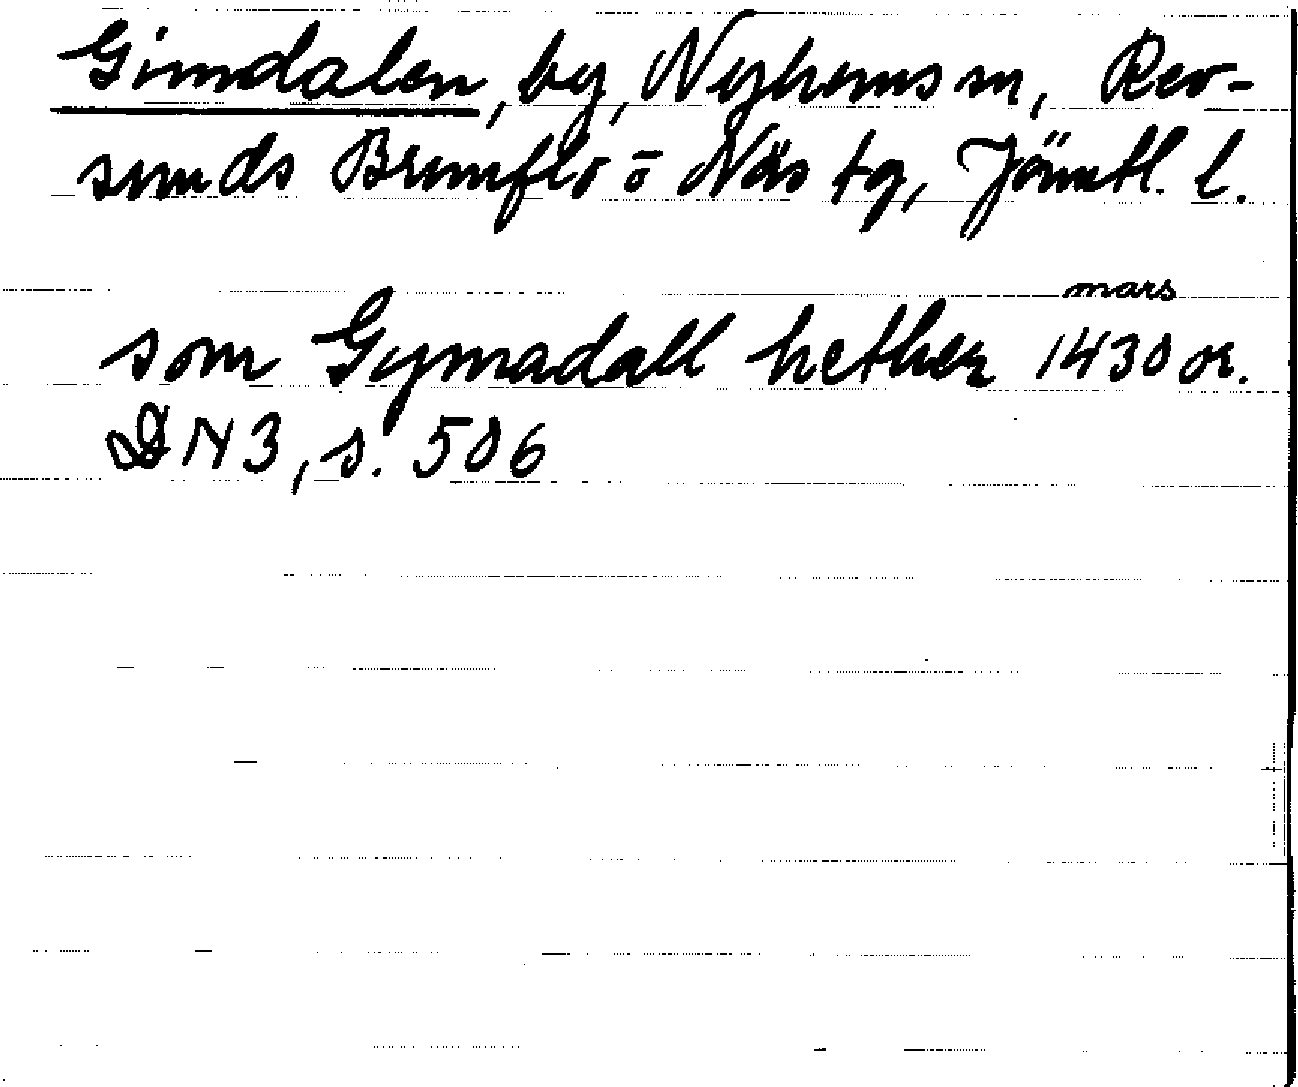 Gimdalen, by, Nyhems sn, Rev-
sunds Brunflo o Näs tg, Jämtl. l.
mars
som Gymadall hether 1430 or.
DN 3, s. 506